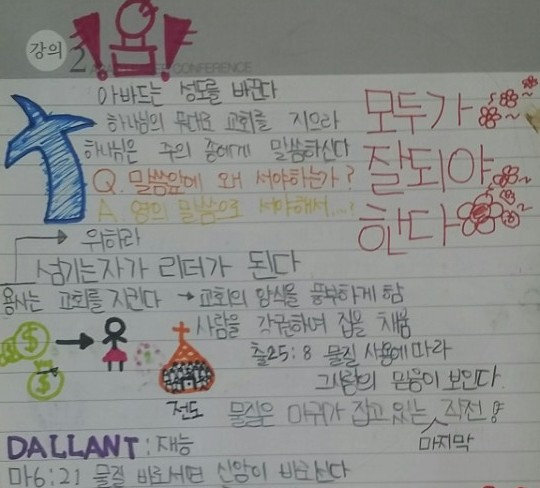 강의 2
CONFERENCE
아바드는 성도를 바꾼다
하나님의 무대요 교회를 지으라
하나님은 주의 종에게 말씀하신다
Q. 말씀앞에 왜 서야하는가?
A. 영의 말씀으로 서야해서...!
모두가
잘되야
한다
위하라
섬기는자가 리더가 된다
용사는 교회를 지킨다 → 교회의 양식을 풍부하게 함
사람을 강권하여 집을 채움
출25:8 물질 사용에 따라
그사람의 믿음이 보인다.
$
$
전도 물질은 마귀가 잡고 있는 마지막 작전
DALLANT : 재능
마6:21 물질 바로서면 신앙이 바로선다